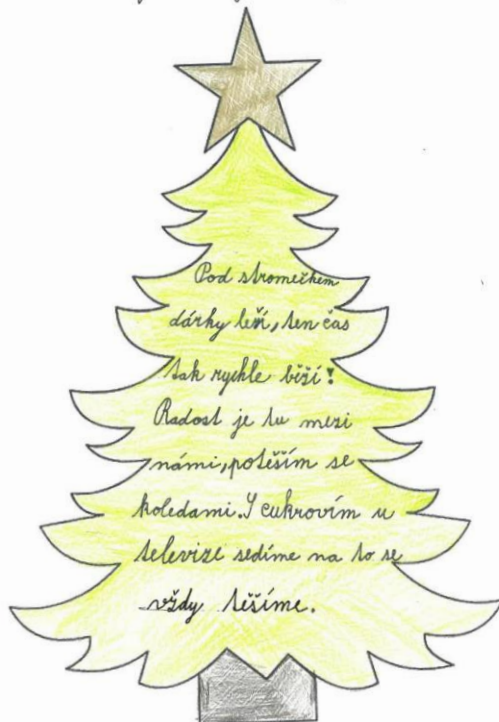 Pod stromečkem
dárky leží, ten čas
tak rychle běží!
Radost je tu mezi
námi, potěším se
koledami. S cukrovím u
televize sedíme na to se
vždy těšíme.